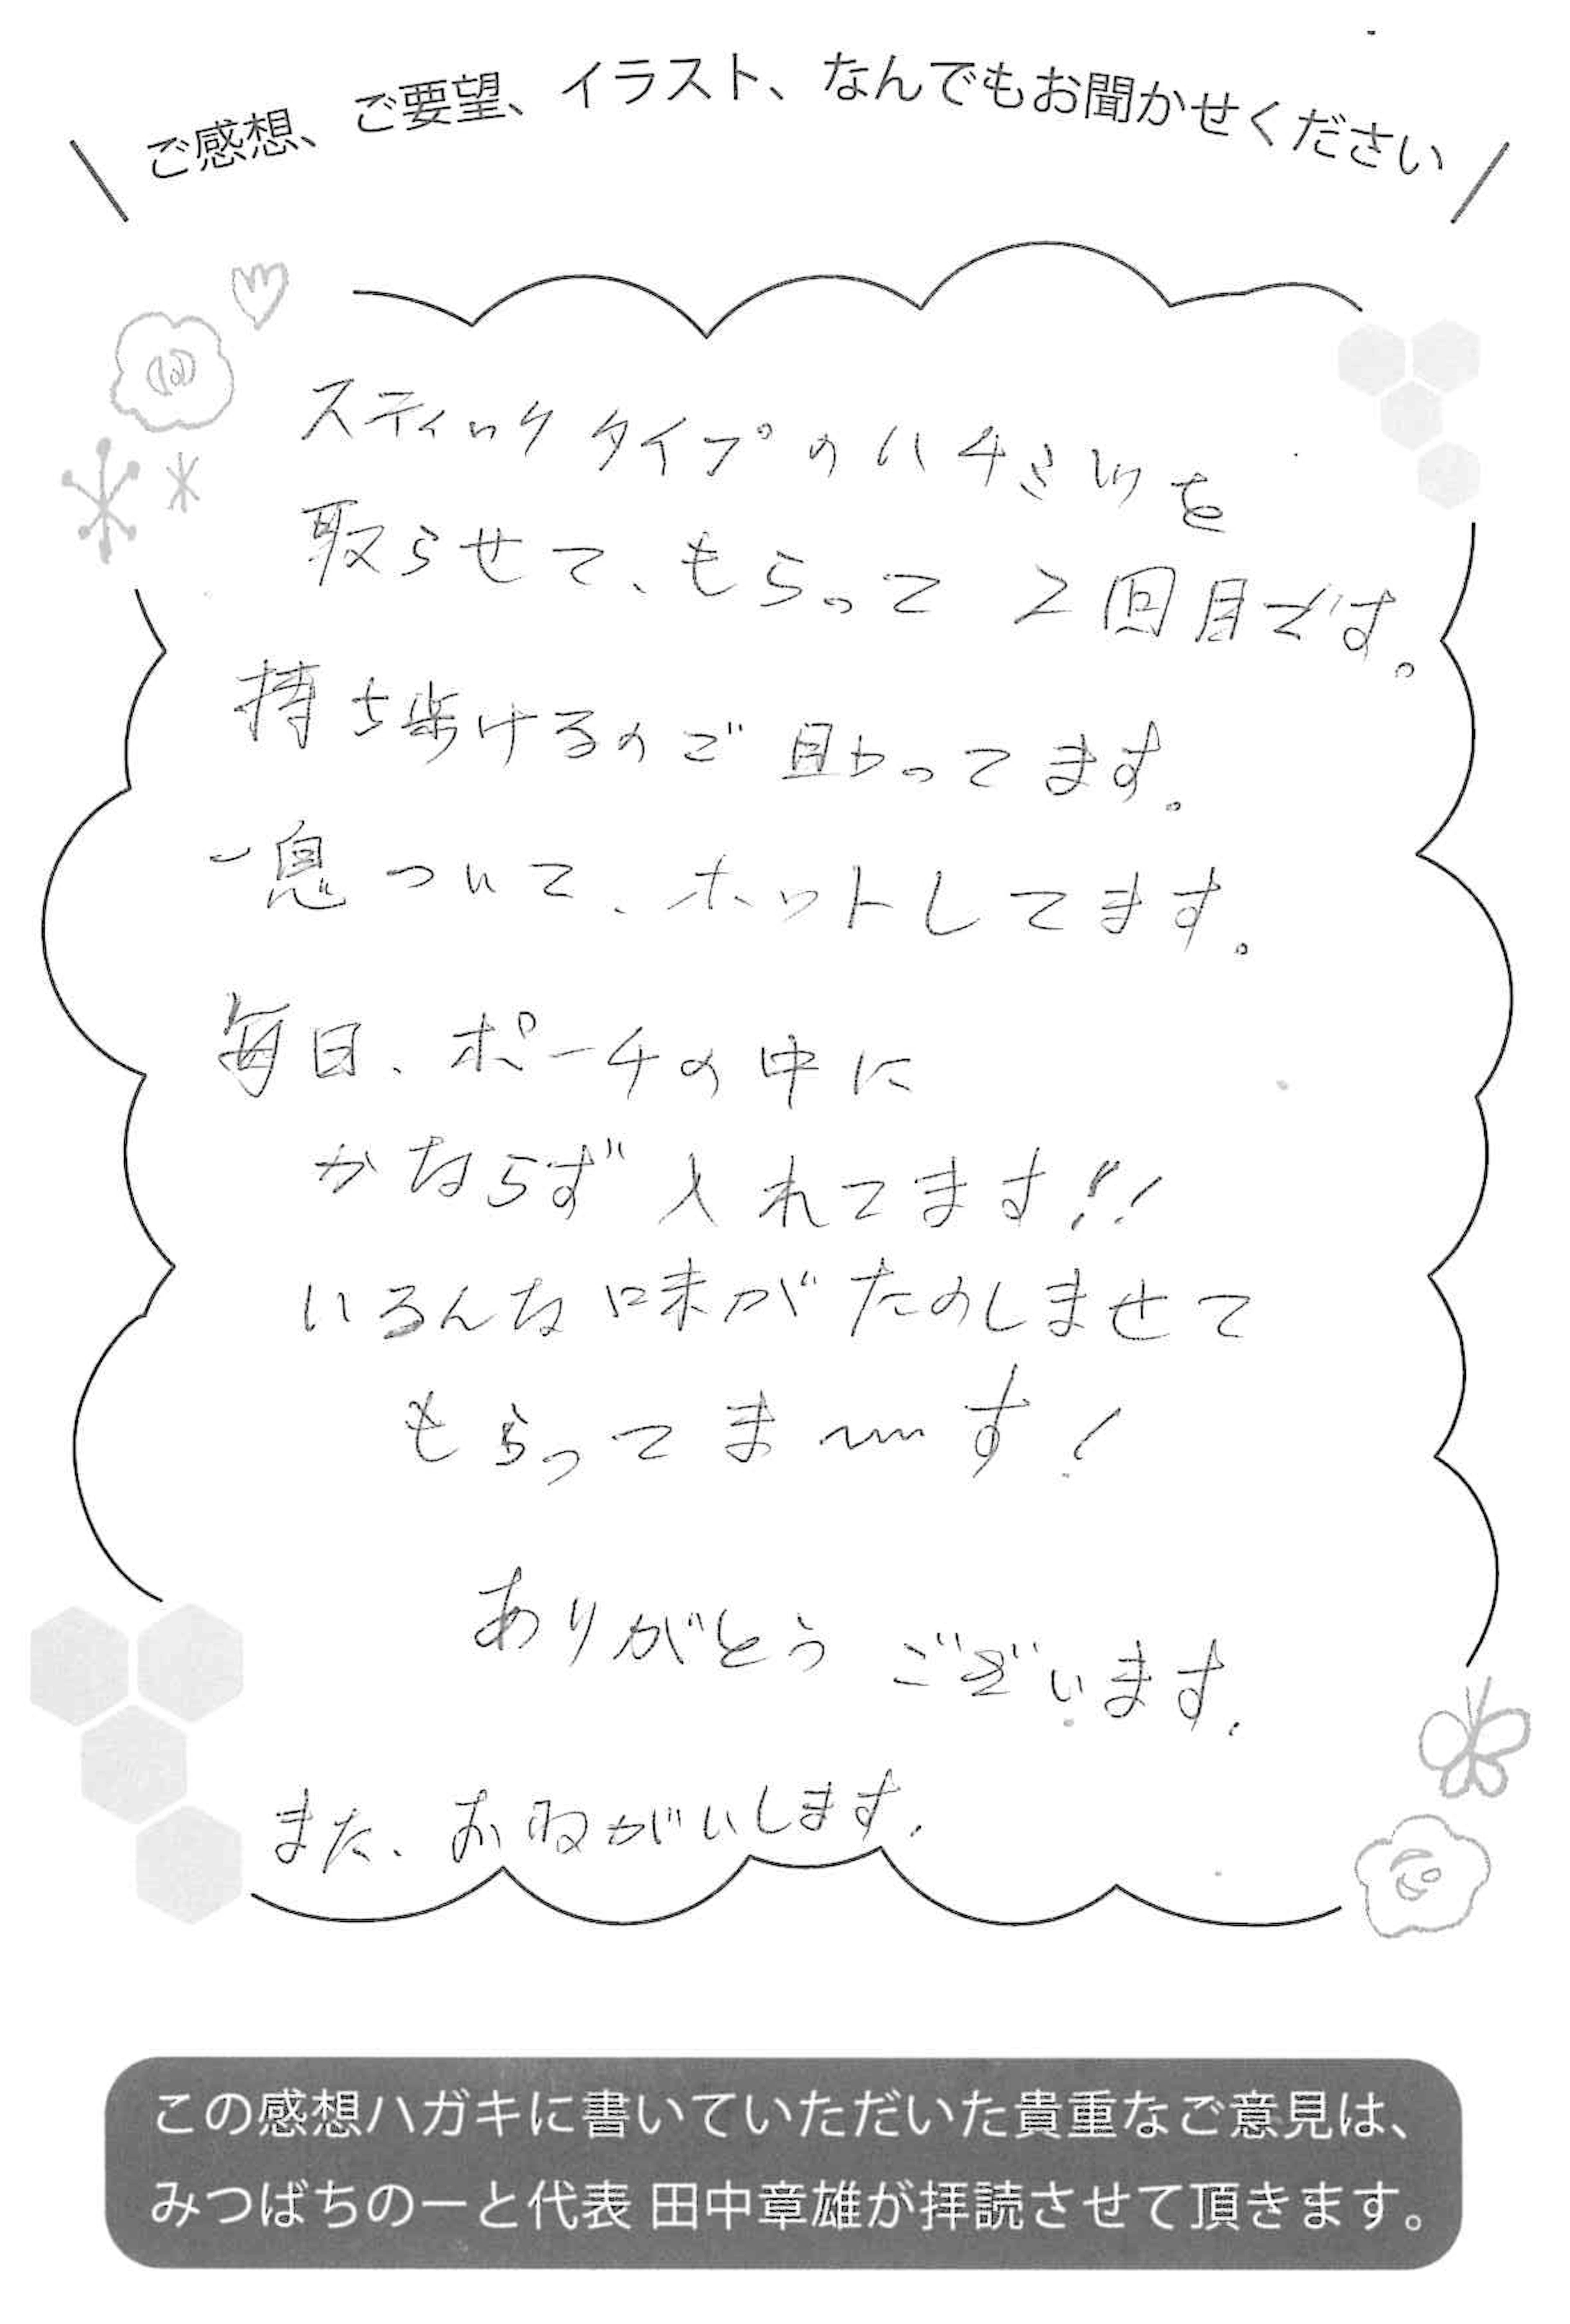 ご感想、ご要望、イラスト、なんでもお聞かせください
スティックタイプのハチミツを
取らせて、もらって 2回目です。
持ち歩けるので 助かってます。
一息ついて、ホットしてます。
毎日、ポーチの中に
かならず入れてます!!
いろんな味がたのしませて
もらってま〜〜す!
ありがとうございます.
また、おねがいします.
この感想ハガキに書いていただいた貴重なご意見は、
みつばちのーと代表 田中章雄が拝読させて頂きます。